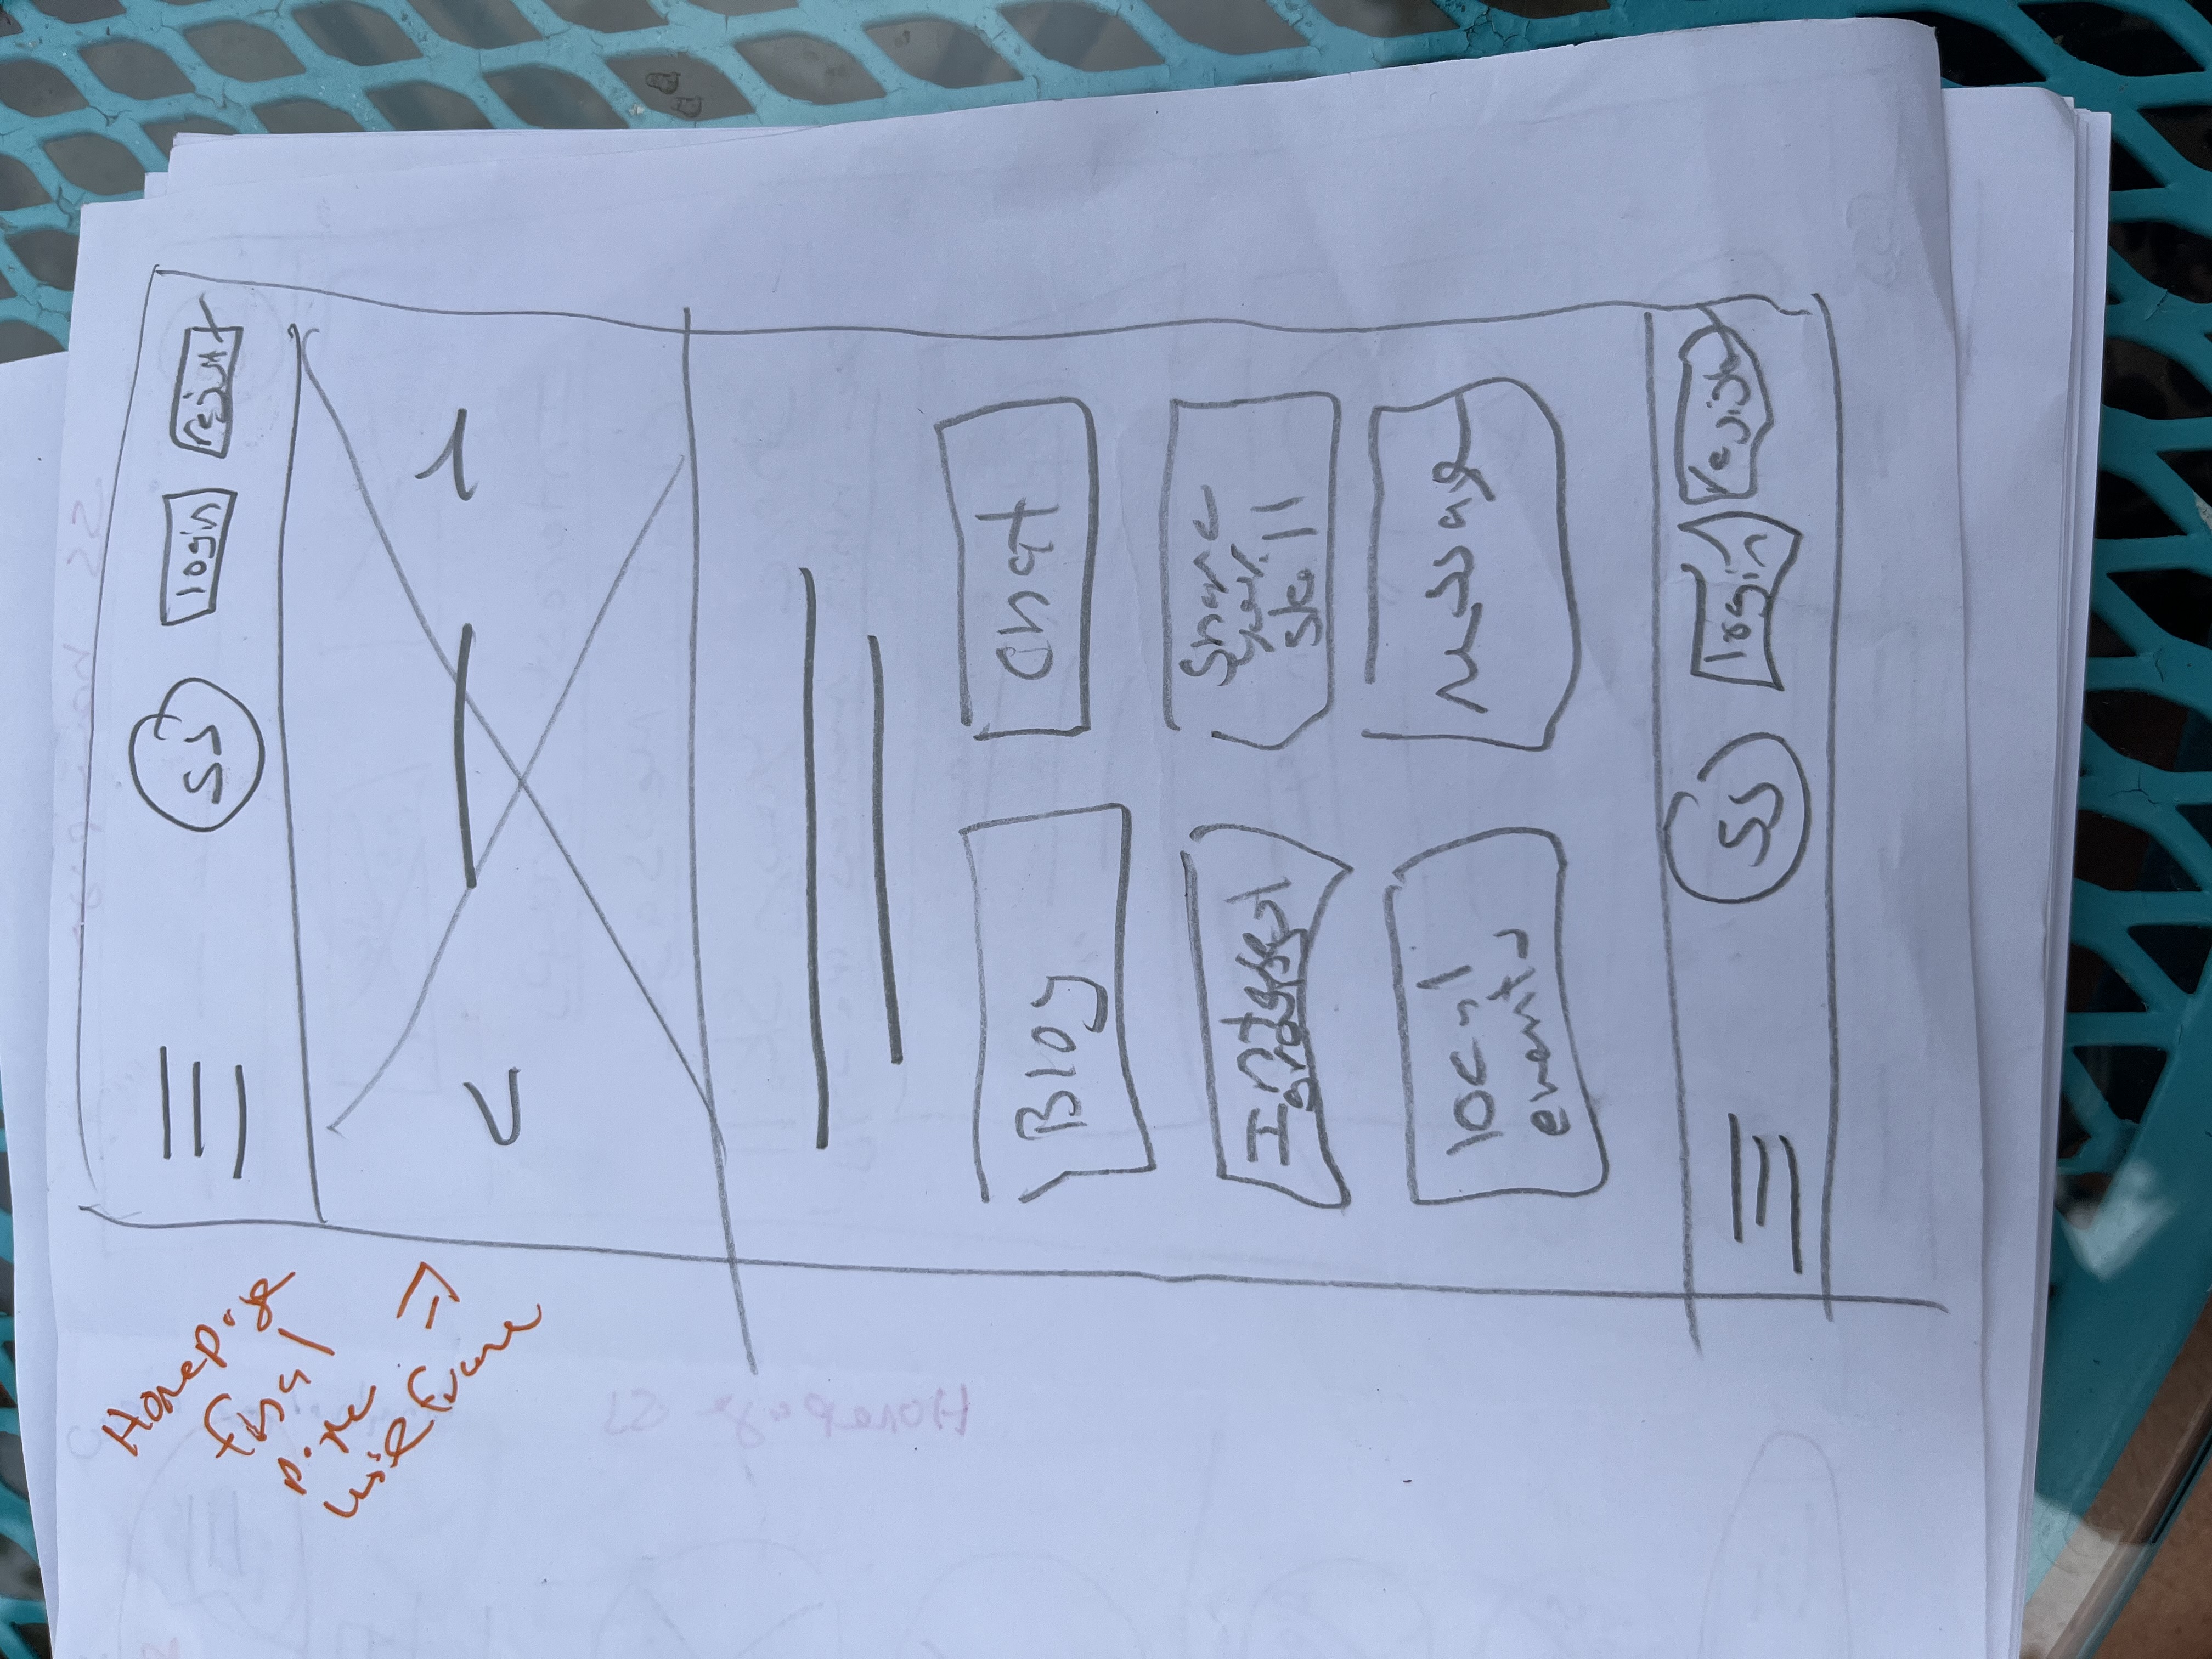 Homepage
final
paper
wireframe
SS login register
Blog Chat
Interest
groups
Share
your
skill
local
events
Message
SS login register
Homepage SS